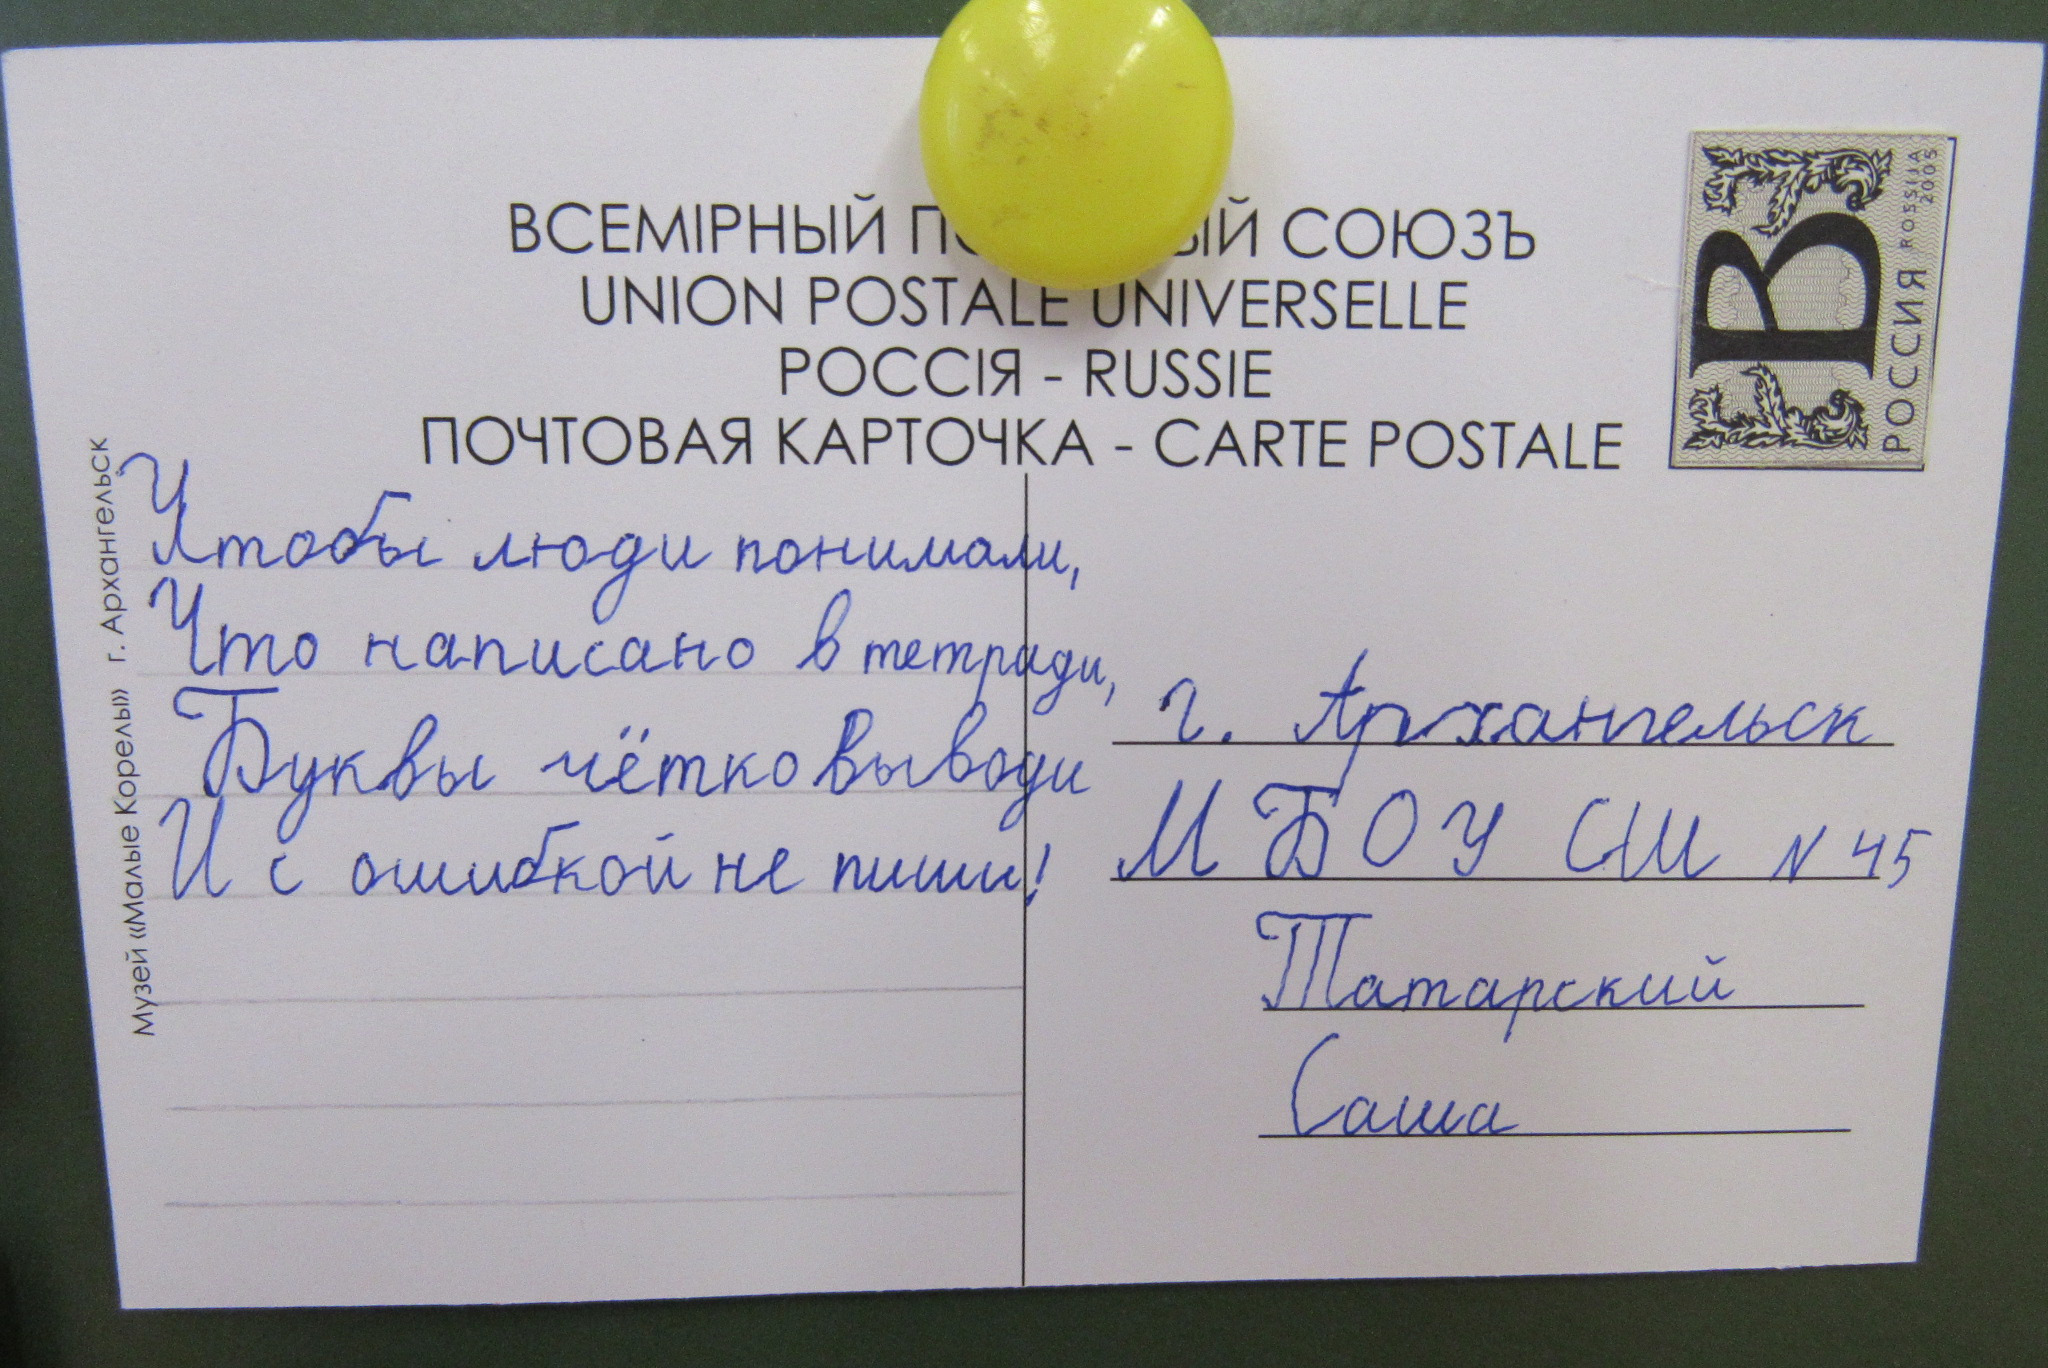 ВСЕМІРНЫЙ СОЮЗЪ
UNION POSTALE UNIVERSELLE
РОССІЯ - RUSSIE
ПОЧТОВАЯ КАРТОЧКА - CARTE POSTALE
В
РОССИЯ ROSSIJA
2005
Музей «Малые Корелы» г. Архангельск
Чтобы люди понимали,
Что написано в тетради,
Буквы чётко выводи
И с ошибкой не пиши!
г. Архангельск
МБОУ СШ N 45
Татарский
Саша